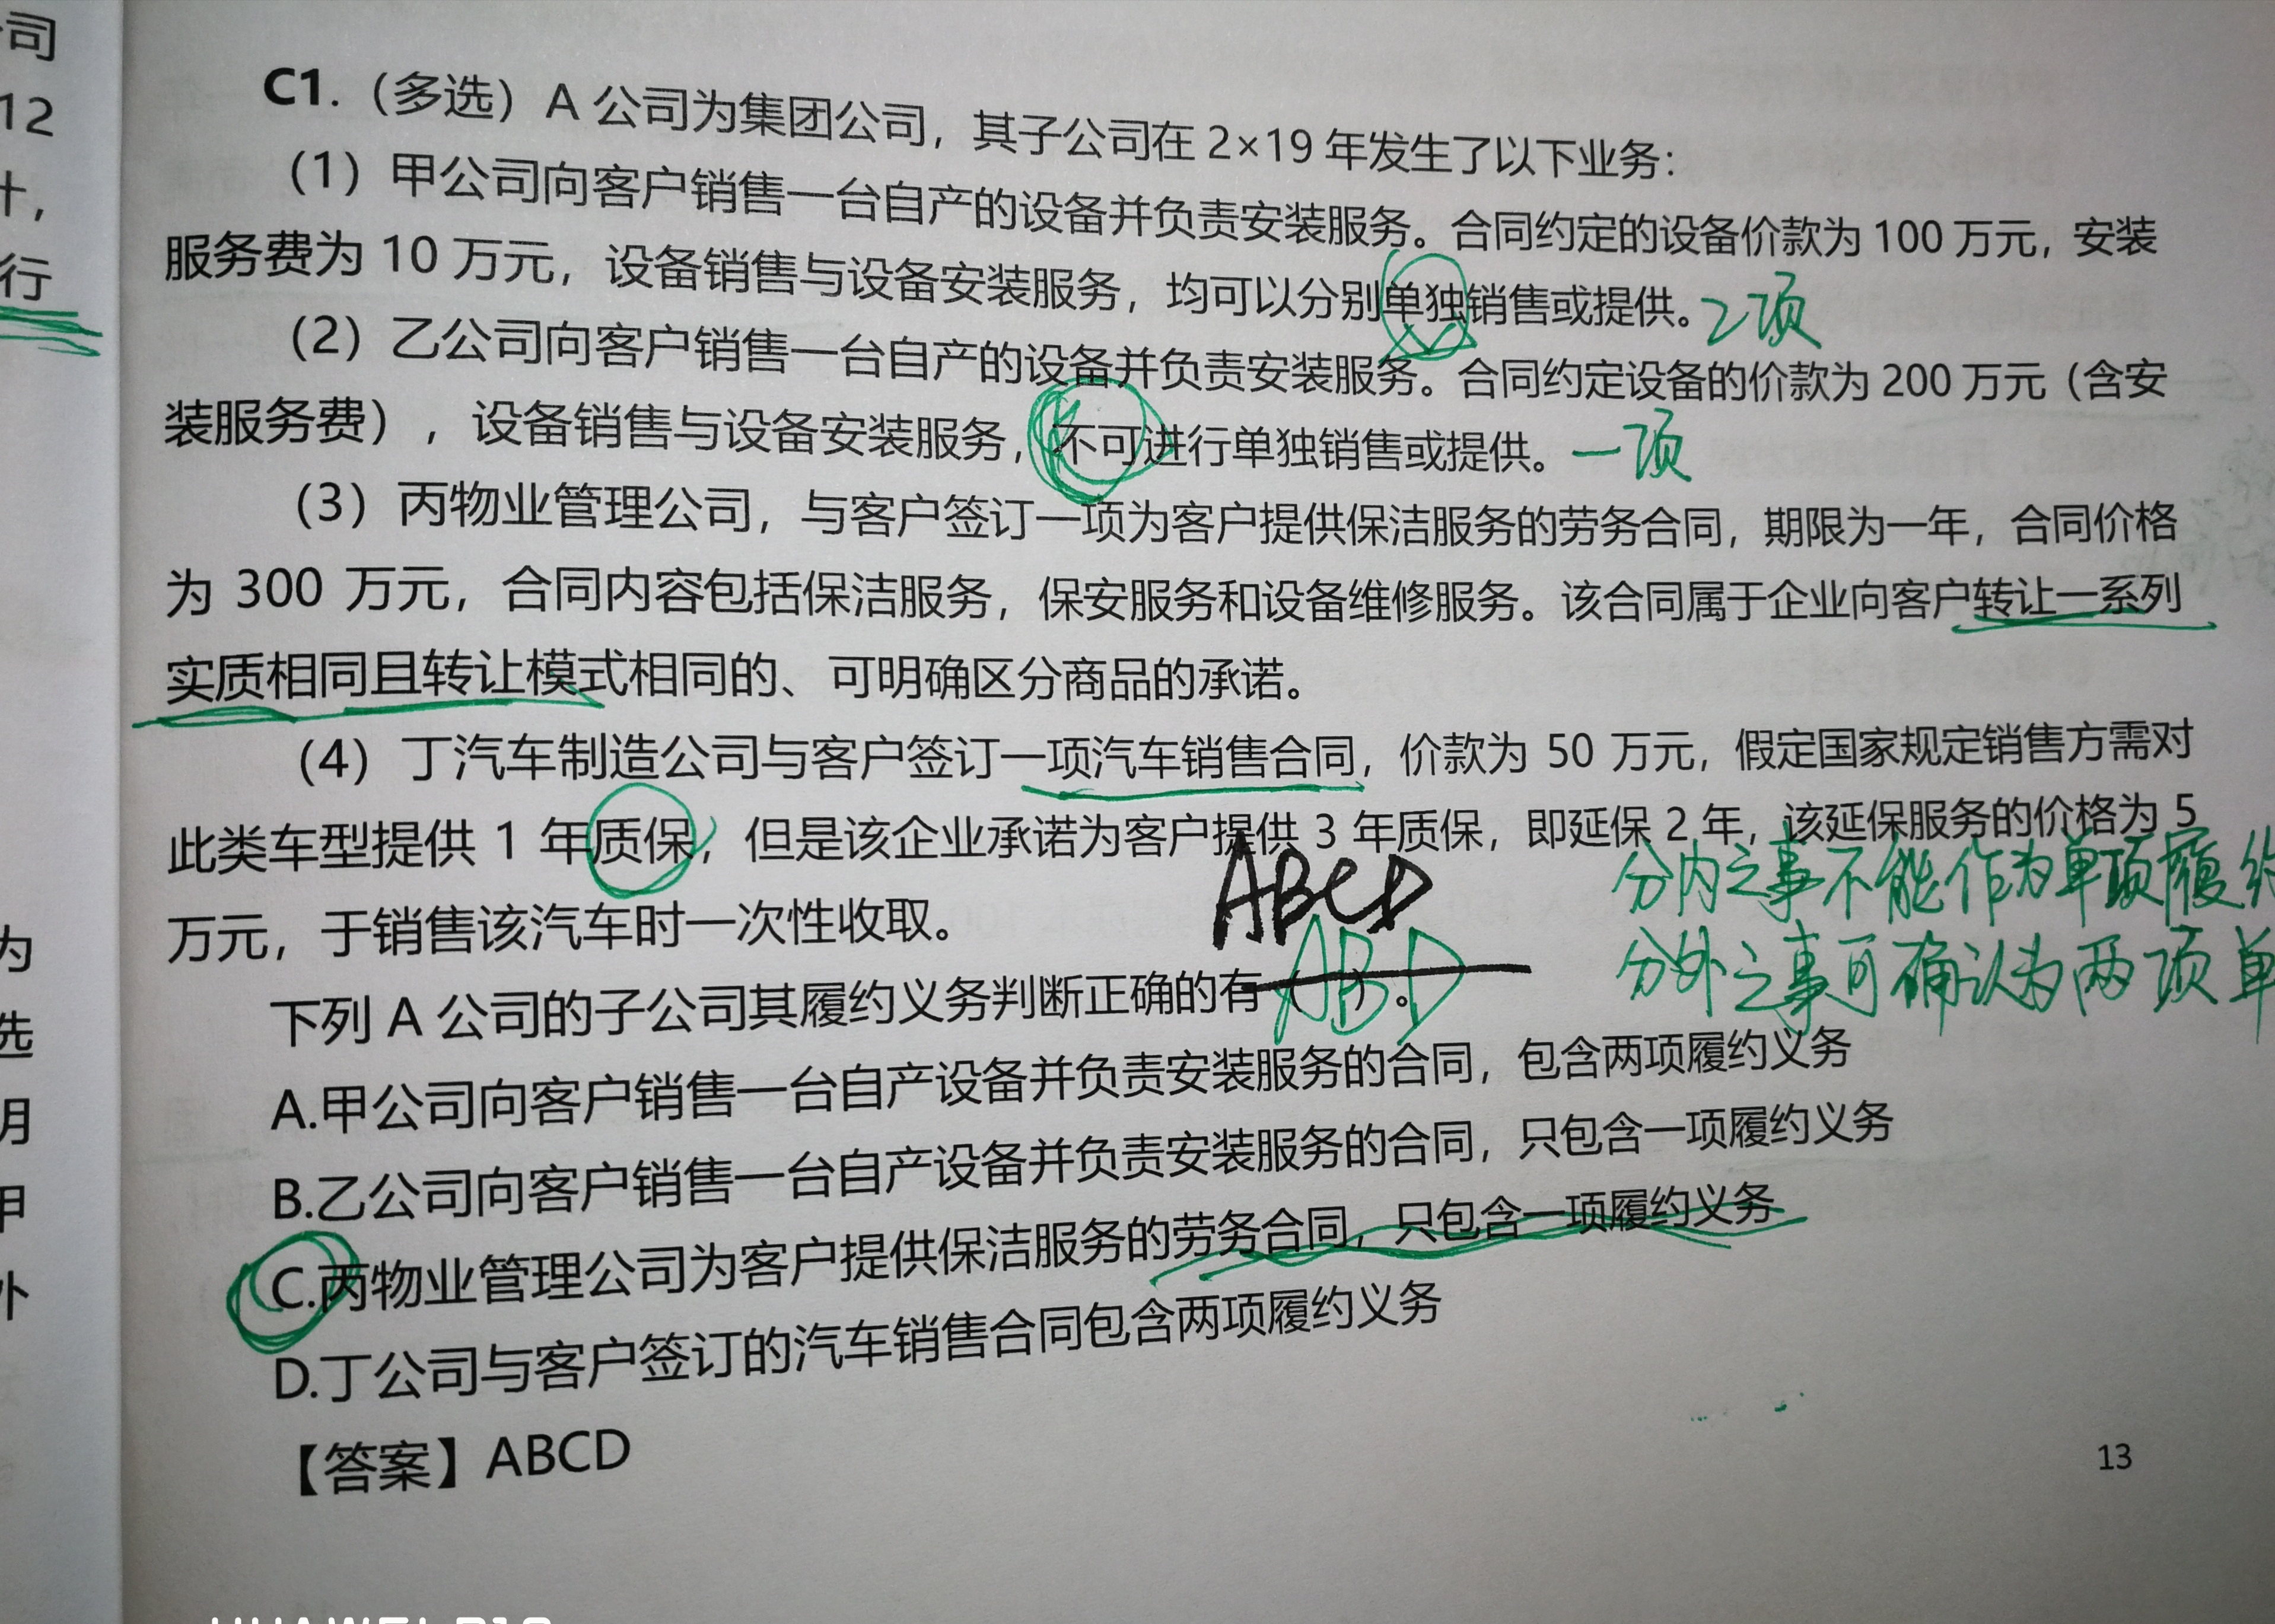 司
12
计，
行
为
选
明
甲
外
C1.（多选）A 公司为集团公司，其子公司在 2×19 年发生了以下业务：
（1）甲公司向客户销售一台自产的设备并负责安装服务。合同约定的设备价款为 100 万元，安装
服务费为 10 万元，设备销售与设备安装服务，均可以分别单独销售或提供。2项
（2）乙公司向客户销售一台自产的设备并负责安装服务。合同约定设备的价款为 200 万元（含安
装服务费），设备销售与设备安装服务，不可进行单独销售或提供。一项
（3）丙物业管理公司，与客户签订一项为客户提供保洁服务的劳务合同，期限为一年，合同价格
为 300 万元，合同内容包括保洁服务，保安服务和设备维修服务。该合同属于企业向客户转让一系列
实质相同且转让模式相同的、可明确区分商品的承诺。
（4）丁汽车制造公司与客户签订一项汽车销售合同，价款为 50 万元，假定国家规定销售方需对
此类车型提供 1 年质保，但是该企业承诺为客户提供 3 年质保，即延保 2 年，该延保服务的价格为 5
万元，于销售该汽车时一次性收取。
ABCD
分内之事不能作为单项履约
分外之事可确认为两项单
下列 A 公司的子公司其履约义务判断正确的有（ ）。
ABD
A.甲公司向客户销售一台自产设备并负责安装服务的合同，包含两项履约义务
B.乙公司向客户销售一台自产设备并负责安装服务的合同，只包含一项履约义务
C.丙物业管理公司为客户提供保洁服务的劳务合同，只包含一项履约义务
D.丁公司与客户签订的汽车销售合同包含两项履约义务
【答案】ABCD
13